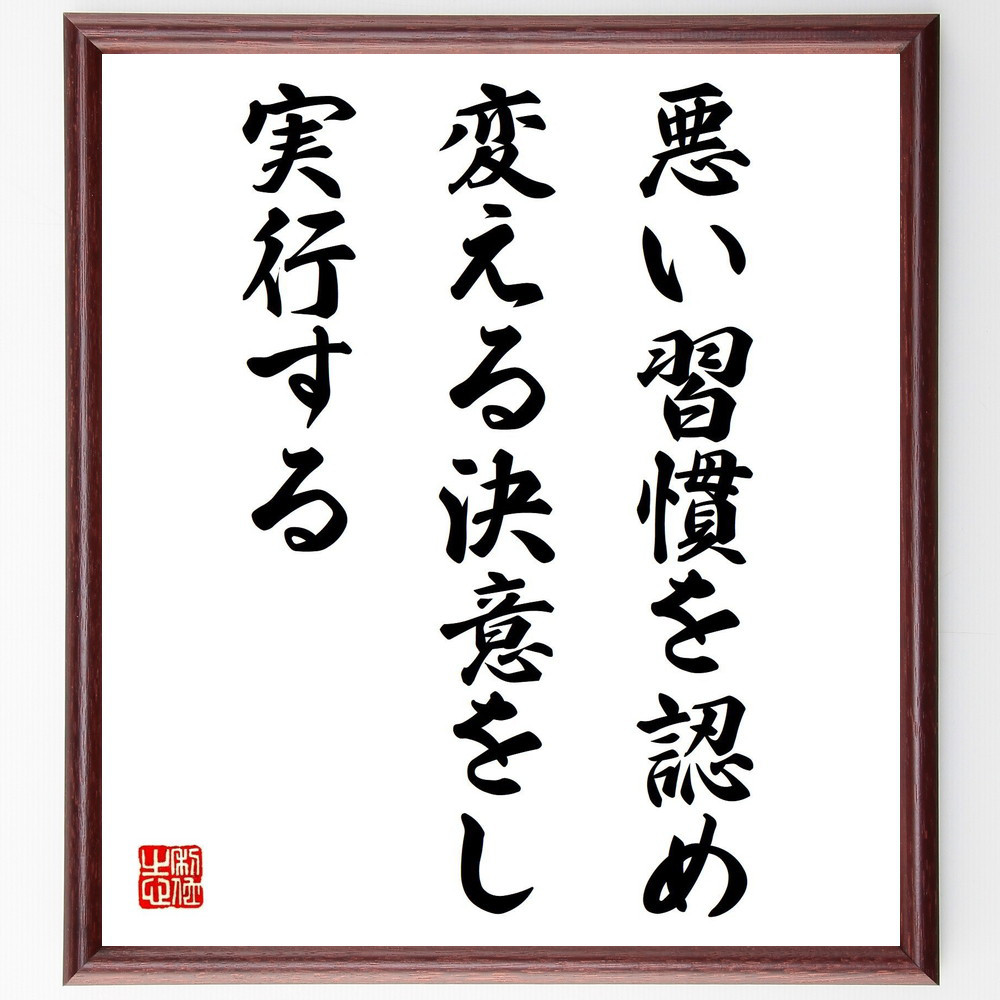 悪い習慣を認め
変える決意をし
実行する